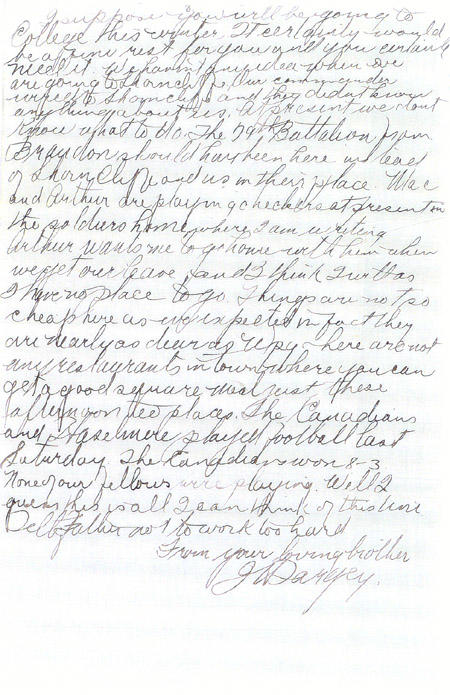 I suppose you will be going to
College this winter. It certainly would
be a fine rest for you and you certainly
need it. We havent an idea when we
are going to Shorncliffe. Our commander
wired to Shorncliffe and they didnt know
anything about us. At present we dont
know what to do. The 79th Battalion from
Brandon should have been here instead
of Shorncliffe and us in their place. Mac
and Arthur are playing checkers at present in
the soldiers home where I am writing
Arthur wants me to go home with him when
we get our leave and I think I will as
I have no place to go. Things are not so
cheap here as we expected in fact they
are nearly as dear as
there are not
any restaurants in town where you can
get a good square meal just these
afternoon tea places. The Canadians
and Haselmere played football last
Saturday. The Canadians won 8-3
None of our fellows were playing. Well I
guess this is all I can think of this time
Tell Father not to work too hard
From your loving brother